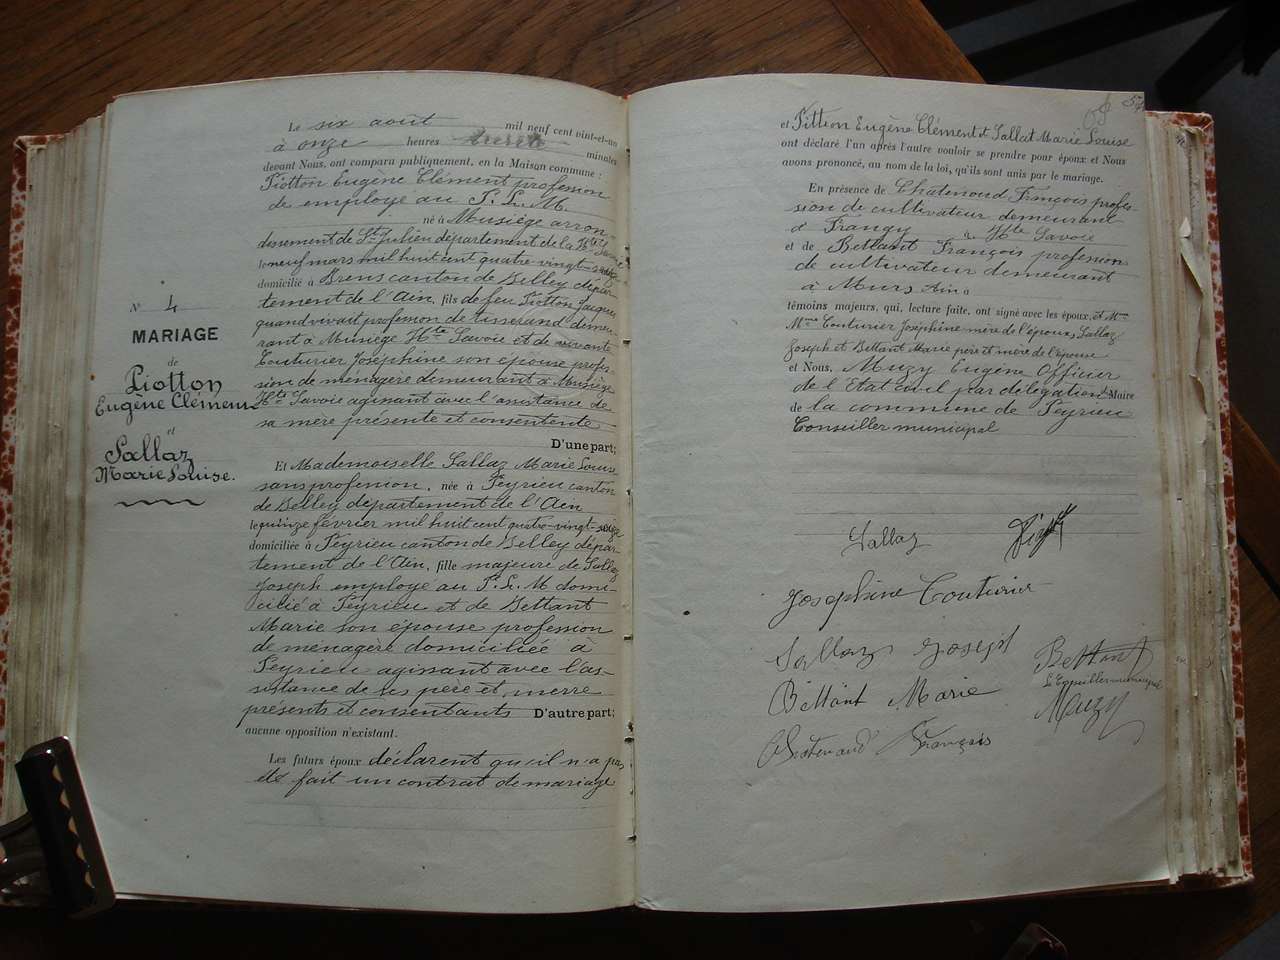 N° 4
MARIAGE
de
Piotton
Eugène Clément
et
Sallaz
Marie Louise.
Le six août mil neuf cent vint-et-un
à onze heures minutes
devant Nous, ont comparu publiquement, en la Maison commune :
Piotton Eugène Clément profession
de employé au P. L. M.
né à Musiège arron-
dissement de St Julien département de la Hte Savoie
le neuf mars mil huit cent quatre-vingt-
domicilié à Brens canton de Belley dépar-
tement de l'Ain, fils de feu Piotton Jacques
quand vivait profession de tisserand demeu-
rant à Musiège Hte Savoie et de vivante
Couturier Joséphine son épouse profes-
sion de ménagère demeurant à Musiège
Hte Savoie agissant avec l'assistance de
sa mère présente et consentente
D'une part;
Et Mademoiselle Sallaz Marie Louise
sans profession, née à Peyrieu canton
de Belley département de l'Ain
le quinze février mil huit cent quatre-vingt-seize
domiciliée à Peyrieu canton de Belley dépar-
tement de l'Ain, fille majeure de Sallaz
Joseph employé au P. L. M domi-
cilié à Peyrieu et de Bettant
Marie son épouse profession
de ménagère domiciliée à
Peyrieu agissant avec l'as-
sistance de ses père et merre
présents et consentants D'autre part;
aucune opposition n'existant.
Les futurs époux déclarent qu'il n'a pas
été fait un contrat de mariage
57
et Pitteon Eugène Clément et Sallat Marie Louise
ont déclaré l'un après l'autre vouloir se prendre pour époux et Nous
avons prononcé, au nom de la loi, qu'ils sont unis par le mariage.
En présence de Châtenoud François profes-
sion de cultivateur demeurant
à Frangy Hte Savoie
et de Bettant François profession
de cultivateur demeurant
à Murs Ain
témoins majeurs, qui, lecture faite, ont signé avec les époux, et Mme
Mme Couturier Joséphine mère de l'époux, Sallaz
Joseph et Bettant Marie père et mère de l'épouse
et Nous, Muzy Eugène Officier
de l'Etat civil par délégation Maire
de la commune de Peyrieu
Conseiller municipal
Sallaz
Joséphine Couturier
Sallaz Joseph
Bettant
Le Conseiller municipal
Bettant Marie
Muzy
Chatenoud François